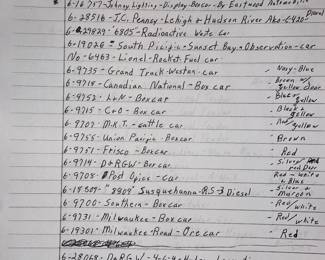 6-16757-Johnny Lightning-Display-Boxcar-By Eastwood Automobilia
6-28518-J.C. Penney-Lehigh & Hudson River Alco C-420- Diesel
6-29829-6805-Radioactive Waste Car
6-19026-South Pacific-Sunset Bay-Observation-car
No-6463-Lionel-Rocket Fuel car
6-9735-Grand Trunk-Western-car - Navy-Blue
6-9718-Canadian National-Box car - Brown w/ yellow door
6-9752-L&N-Boxcar - Blue & yellow
6-9715-C&O-Box car - Black & yellow
6-9707-M.K.T.-cattle car - Red/yellow
6-9755-Union Pacific-Boxcar - Brown
6-9751-Frisco-Boxcar - Red
6-9714-D&RGW-Boxcar - Silver Red Door
6-9708-Post Office-car - Red-white & Blue
6-18507-"8809" Susquehanna-R.S-3 Diesel - Silver & Maroon
6-9700-Southern-Boxcar - Red/white
6-9731-Milwaukee-Boxcar - Red/white
6-19301-Milwaukee-Road-Orecar - Red
6-28068-D&RGW-4-6-4